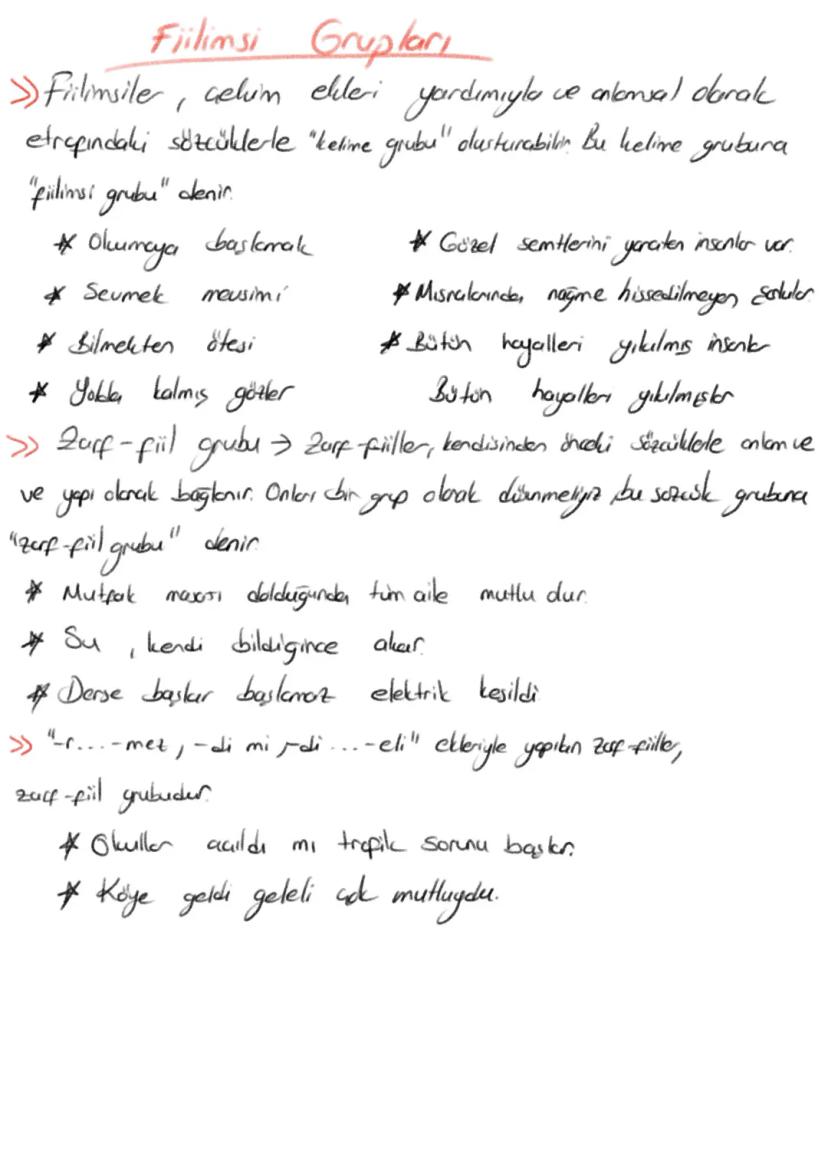 Fiilimsi Grupları
>> Fiilimsiler, çekim ekleri yardımıyla ve anlamsal olarak
etrafındaki sözcüklerle "kelime grubu" oluşturabilir. Bu kelime grubuna
"fiilimsi grubu" denir.
* Okumaya başlamak
* Sevmek mevsimi
* Bilmekten ötesi
* Yolda kalmış gözler
* Güzel semtlerini yaratan insanlar var.
* Mısralarında, nağme hissedilmeyen şarkılar
* Bütün hayalleri yıkılmış insanlar
Bütün hayalleri yıkılmışlar
>> Zarf-fiil grubu → Zarf-fiiller, kendisinden önceki sözcüklerle anlam ve
ve yapı olarak bağlanır. Onları bir grup olarak düşünmeliyiz, bu sözcük grubuna
"zarf-fiil grubu" denir.
* Mutfak masası dolduğunda, tüm aile mutlu dur.
* Su, kendi bildiğince akar.
* Derse başlar başlamaz elektrik kesildi
>> "-r...-mez, -di mi, -di ...-eli" ekleriyle yapılan zarf-fiiller,
zarf-fiil grubudur.
* Okullar açıldı mı trafik sorunu başlar.
* Köye geldi geleli çok mutluydu.